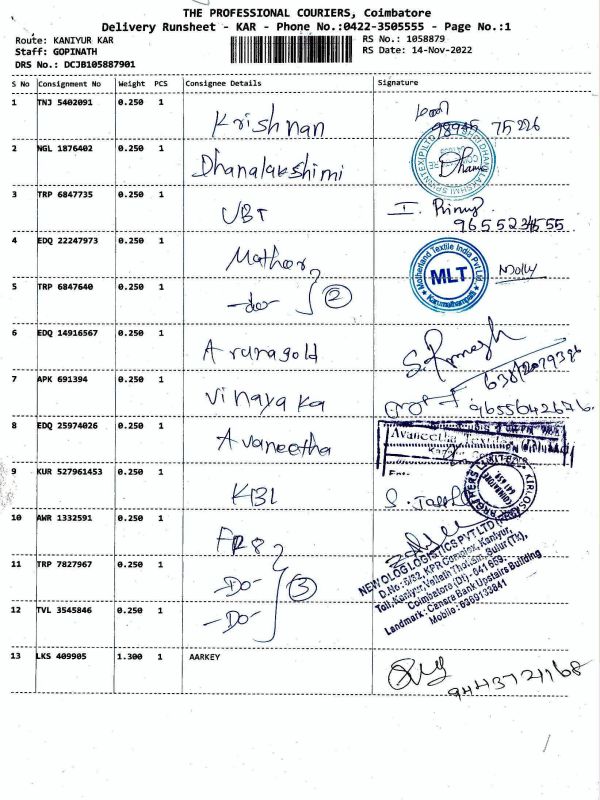 THE PROFESSIONAL COURIERS, Coimbatore
Delivery Runsheet - KAR - Phone No.:0422-3505555 - Page No.:1
Route: KANIYUR KAR
RS No.: 1058879
Staff: GOPINATH
RS Date: 14-Nov-2022
DRS No.: DCJB105887901
S No Consignment No Weight PCS Consignee Details Signature
1 TNJ 5402091 0.250 1 Krishnan
75226
2 NGL 1876402 0.250 1 Dhanalakshimi
3 TRP 6847735 0.250 1 UBT I.
9655234555
4 EDQ 22247973 0.250 1 Mather
Motherland Textile India Pvt Ltd
MLT
Karumathampatti
Molly
5 TRP 6847640 0.250 1 -do- 2
6 EDQ 14916567 0.250 1 Arunagold S. Ramesh
7 APK 691394 0.250 1 Vinayaka
9655642676
8 EDQ 25974026 0.250 1 Avaneetha
Avaneetha Textiles
9 KUR 527961453 0.250 1 KBL S.
10 AWR 1332591 0.250 1 FR8
11 TRP 7827967 0.250 1 -Do- 3
12 TVL 3545846 0.250 1 -Do-
NEW OLOG LOGISTICS PVT LTD
D.No: 5/32, KPR Complex, Kaniyur,
Toll, Kaniyur, Vellaih Thottam, Sulur (Tk),
Coimbatore (Dt) - 641 659.
Landmark: Canara Bank Upstairs Building
Mobile: 6369133841
13 LKS 409905 1.300 1 AARKEY
9443721168